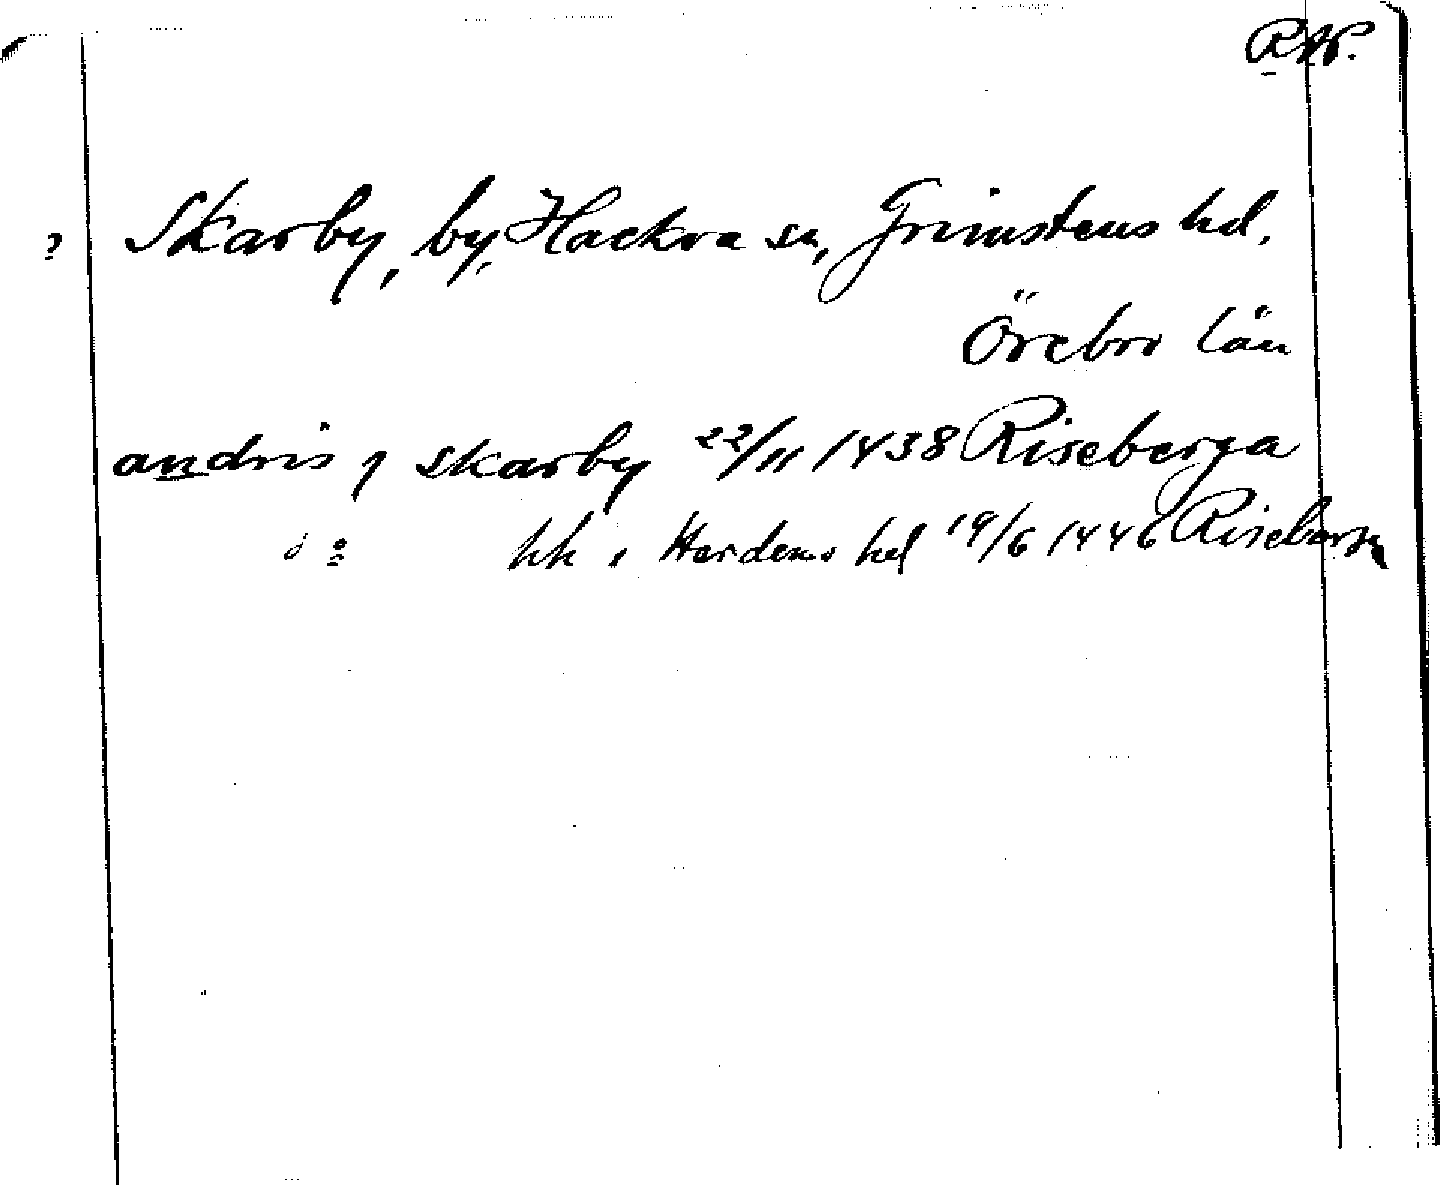 RAP.
? Skarby, by, Hackva sn, Grimstens hd,
Örebro län
andris j skarby 22/11 1438 Riseberga
do hh i Hardemo hd 19/6 1446 Riseberga